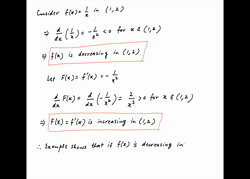 Consider f(x) = 1/x in (1,2)
⇒ d/dx (1/x) = -1/x² < 0 for x ∈ (1,2)
⇒ f(x) is decreasing in (1,2)
Let F(x) = f'(x) = -1/x²
d/dx F(x) = d/dx (-1/x²) = 2/x³ > 0 for x ∈ (1,2)
⇒ F(x) = f'(x) is increasing in (1,2)
∴ Example shows that if f(x) is decreasing in